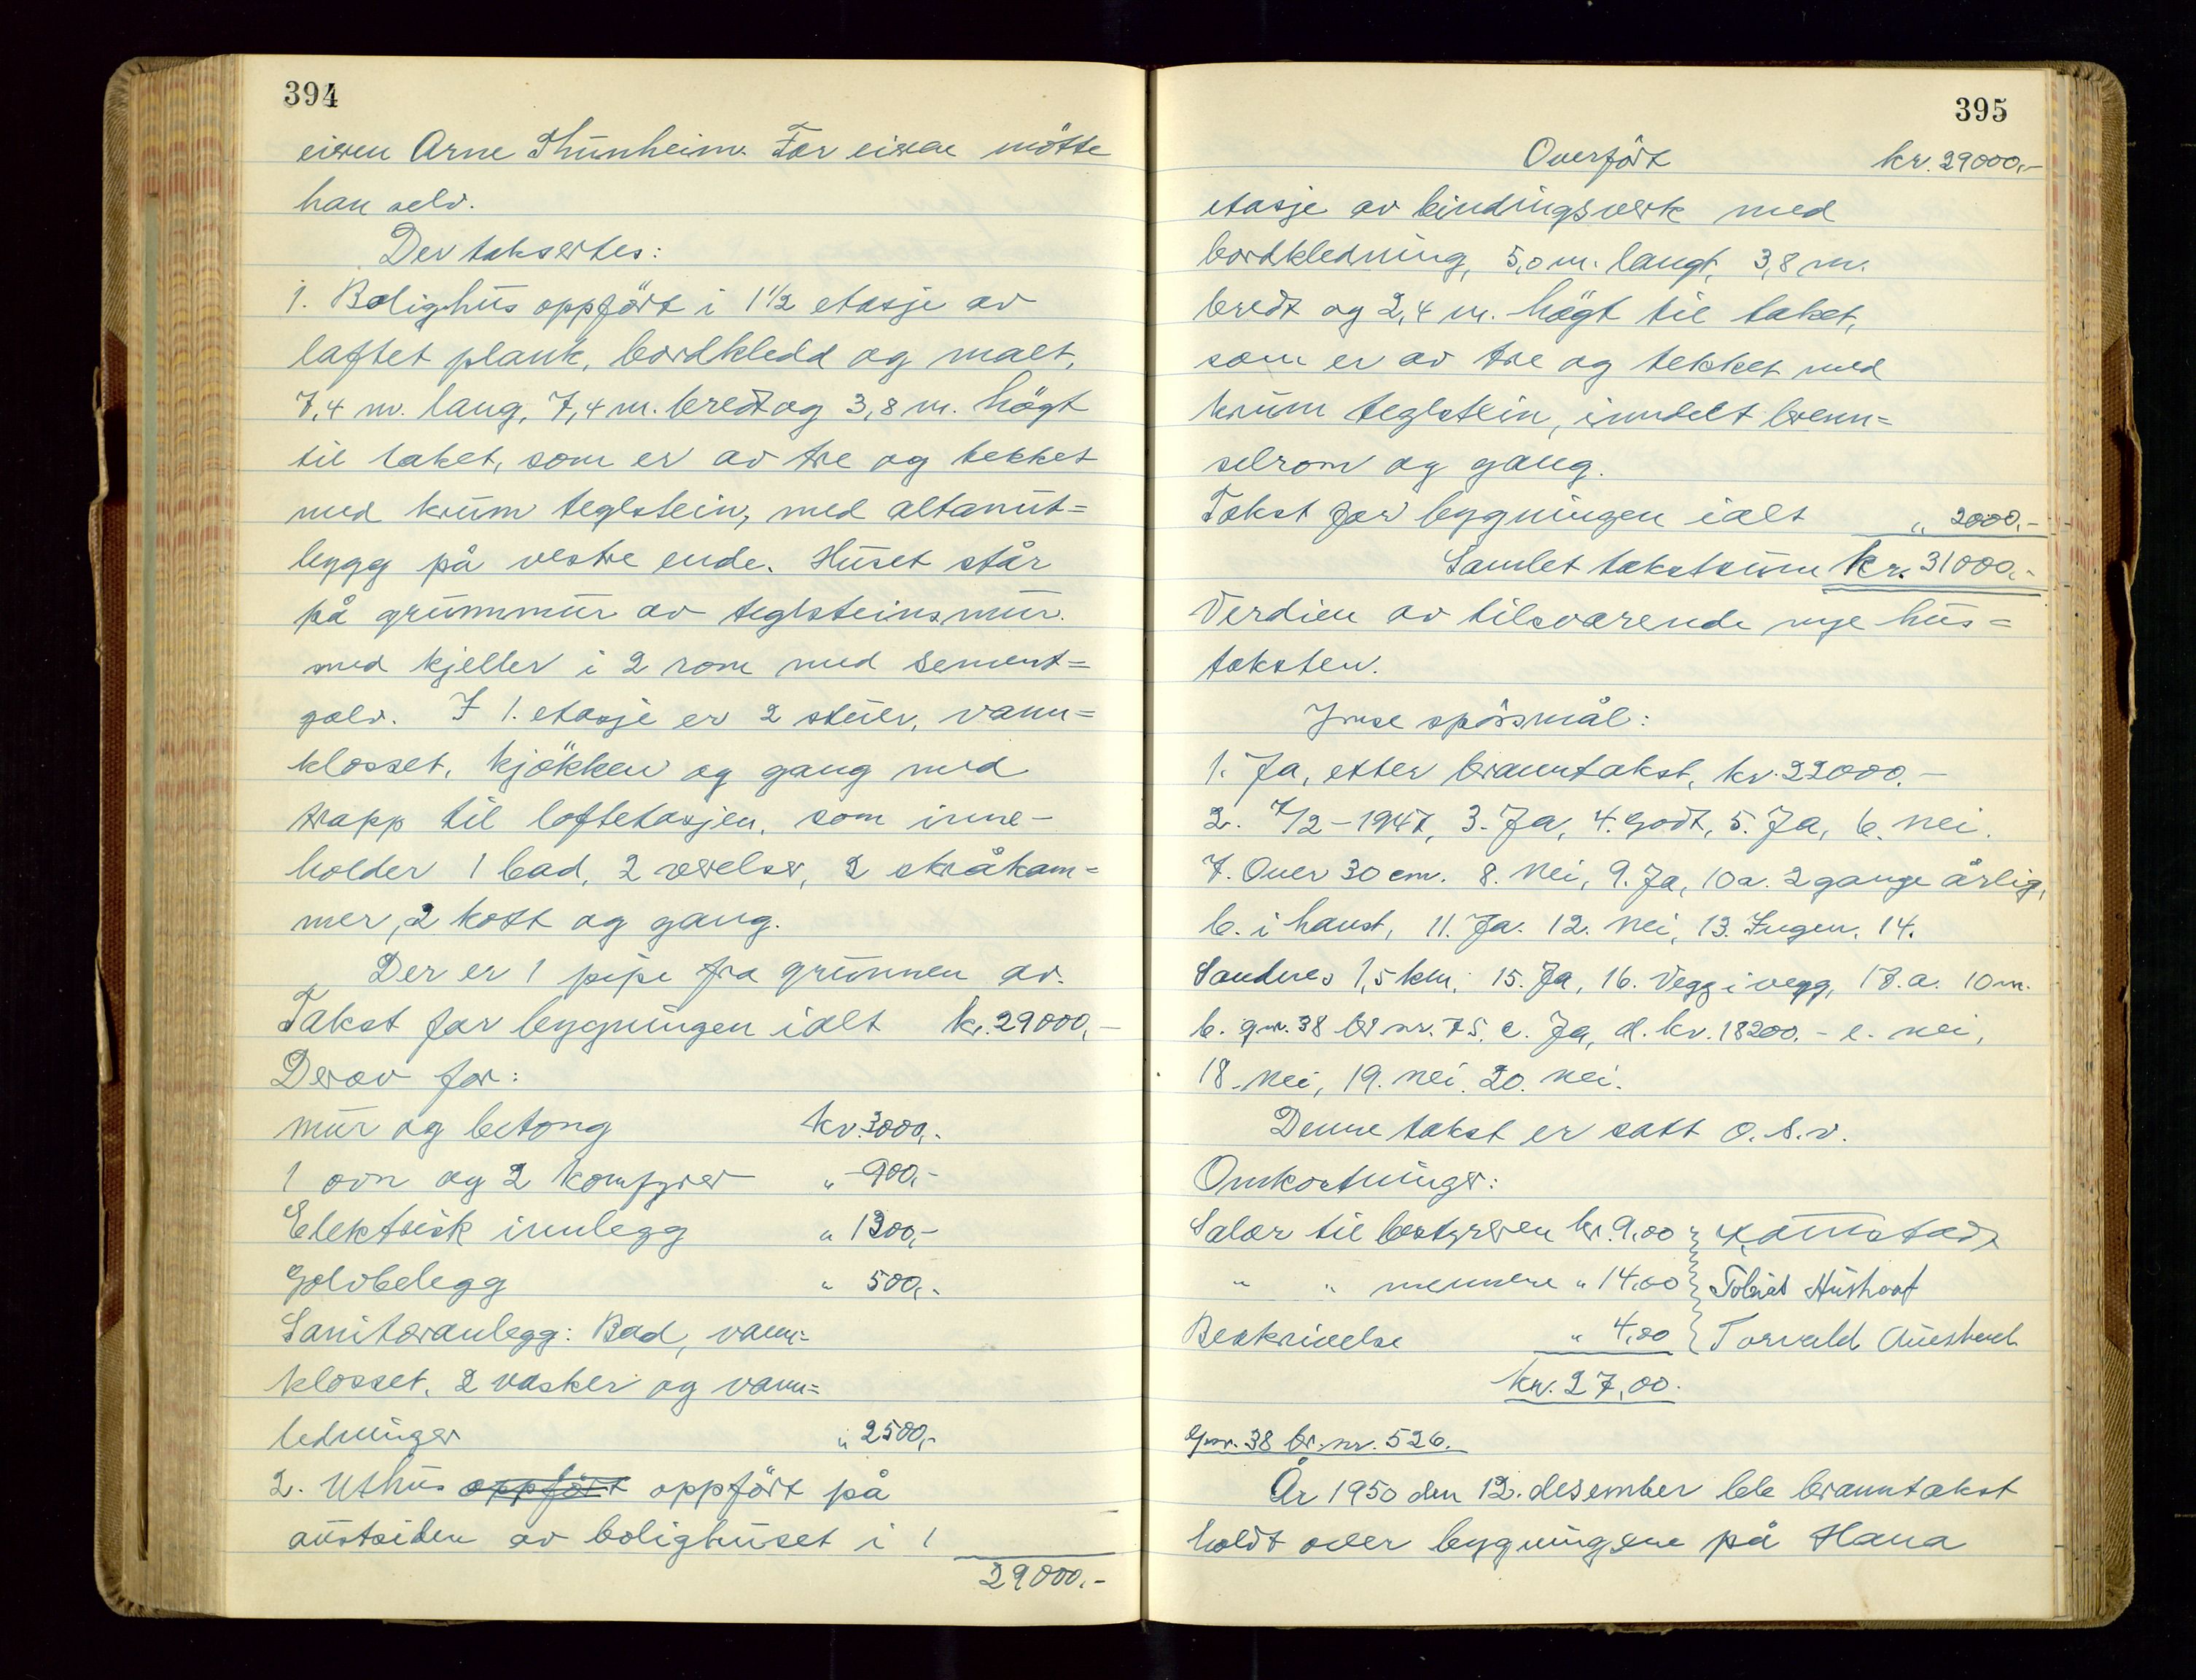 394
eieren Arne Thunheim. For eieren mötte
han selv.
Der taksertes:
1. Bolighus oppfört i 1 1/2 etasje av
laftet plank, bordkledd og malt,
7,4 m. lang, 7,4 m. bredt og 3,8 m. högt
til taket, som er av tre og tekket
med krum teglstein, med altanut=
bygg på vestre ende. Huset står
på grunnmur av teglsteinsmur.
med kjeller i 2 rom med sement=
golv. I 1. etasje er 2 stuer, vann=
klosset, kjökken og gang med
trapp til loftetasjen, som inne-
holder 1 bad, 2 verelser, 2 skråkam=
mer, 2 kott og gang.
Der er 1 pipe fra grunnen av.
Takst for bygningen ialt kr. 29000,-
Derav for:
mur og betong kr. 3000,-
1 ovn og 2 komfyrer " 900,-
Elektrisk innlegg " 1300,-
Golvbelegg " 500,-
Sanitæranlegg: Bad, vann=
klosset, 2 vasker og vann=
ledninger " 2500,-
2. Uthus oppfört oppfört på
austsiden av bolighuset i 1
29000,-
395
Overfört kr. 29000,-
etasje av bindingsverk med
bordkledning, 5,0 m. langt, 3,8 m.
bredt og 2,4 m. högt til taket,
som er av tre og tekket med
krum teglstein, inndelt brenn=
selrom og gang.
Takst for bygningen ialt " 2000,-
Samlet takstsum kr. 31000,-
Verdien av tilsvarende nye hus=
taksten.
Ymse spörsmål:
1. Ja, etter branntakst, kr. 22000.-
2. 7/2-1947, 3. Ja, 4. Godt, 5. Ja, 6. Nei.
7. Over 30 cm. 8. Nei, 9. Ja, 10a. 2 gange årlig,
b. i haust, 11. Ja. 12. Nei, 13. Ingen. 14.
Sandnes 1,5 km, 15. Ja, 16. Vegg i vegg, 17. a. 10 m.
b. gnr. 38 br nr. 75. c. Ja, d. kr. 18200.- e. nei,
18. Nei, 19. Nei 20. Nei.
Denne takst er satt o.s.v.
Omkostninger:
Salær til bestyreren kr. 9,00
" " mennene " 14,00 Tobias Hustoft
Beskrivelse " 4,00 Torvald Auestad
kr. 27,00.
Gnr. 38 br. nr. 526.
År 1950 den 12. desember ble branntakst
holdt over bygningene på Hana